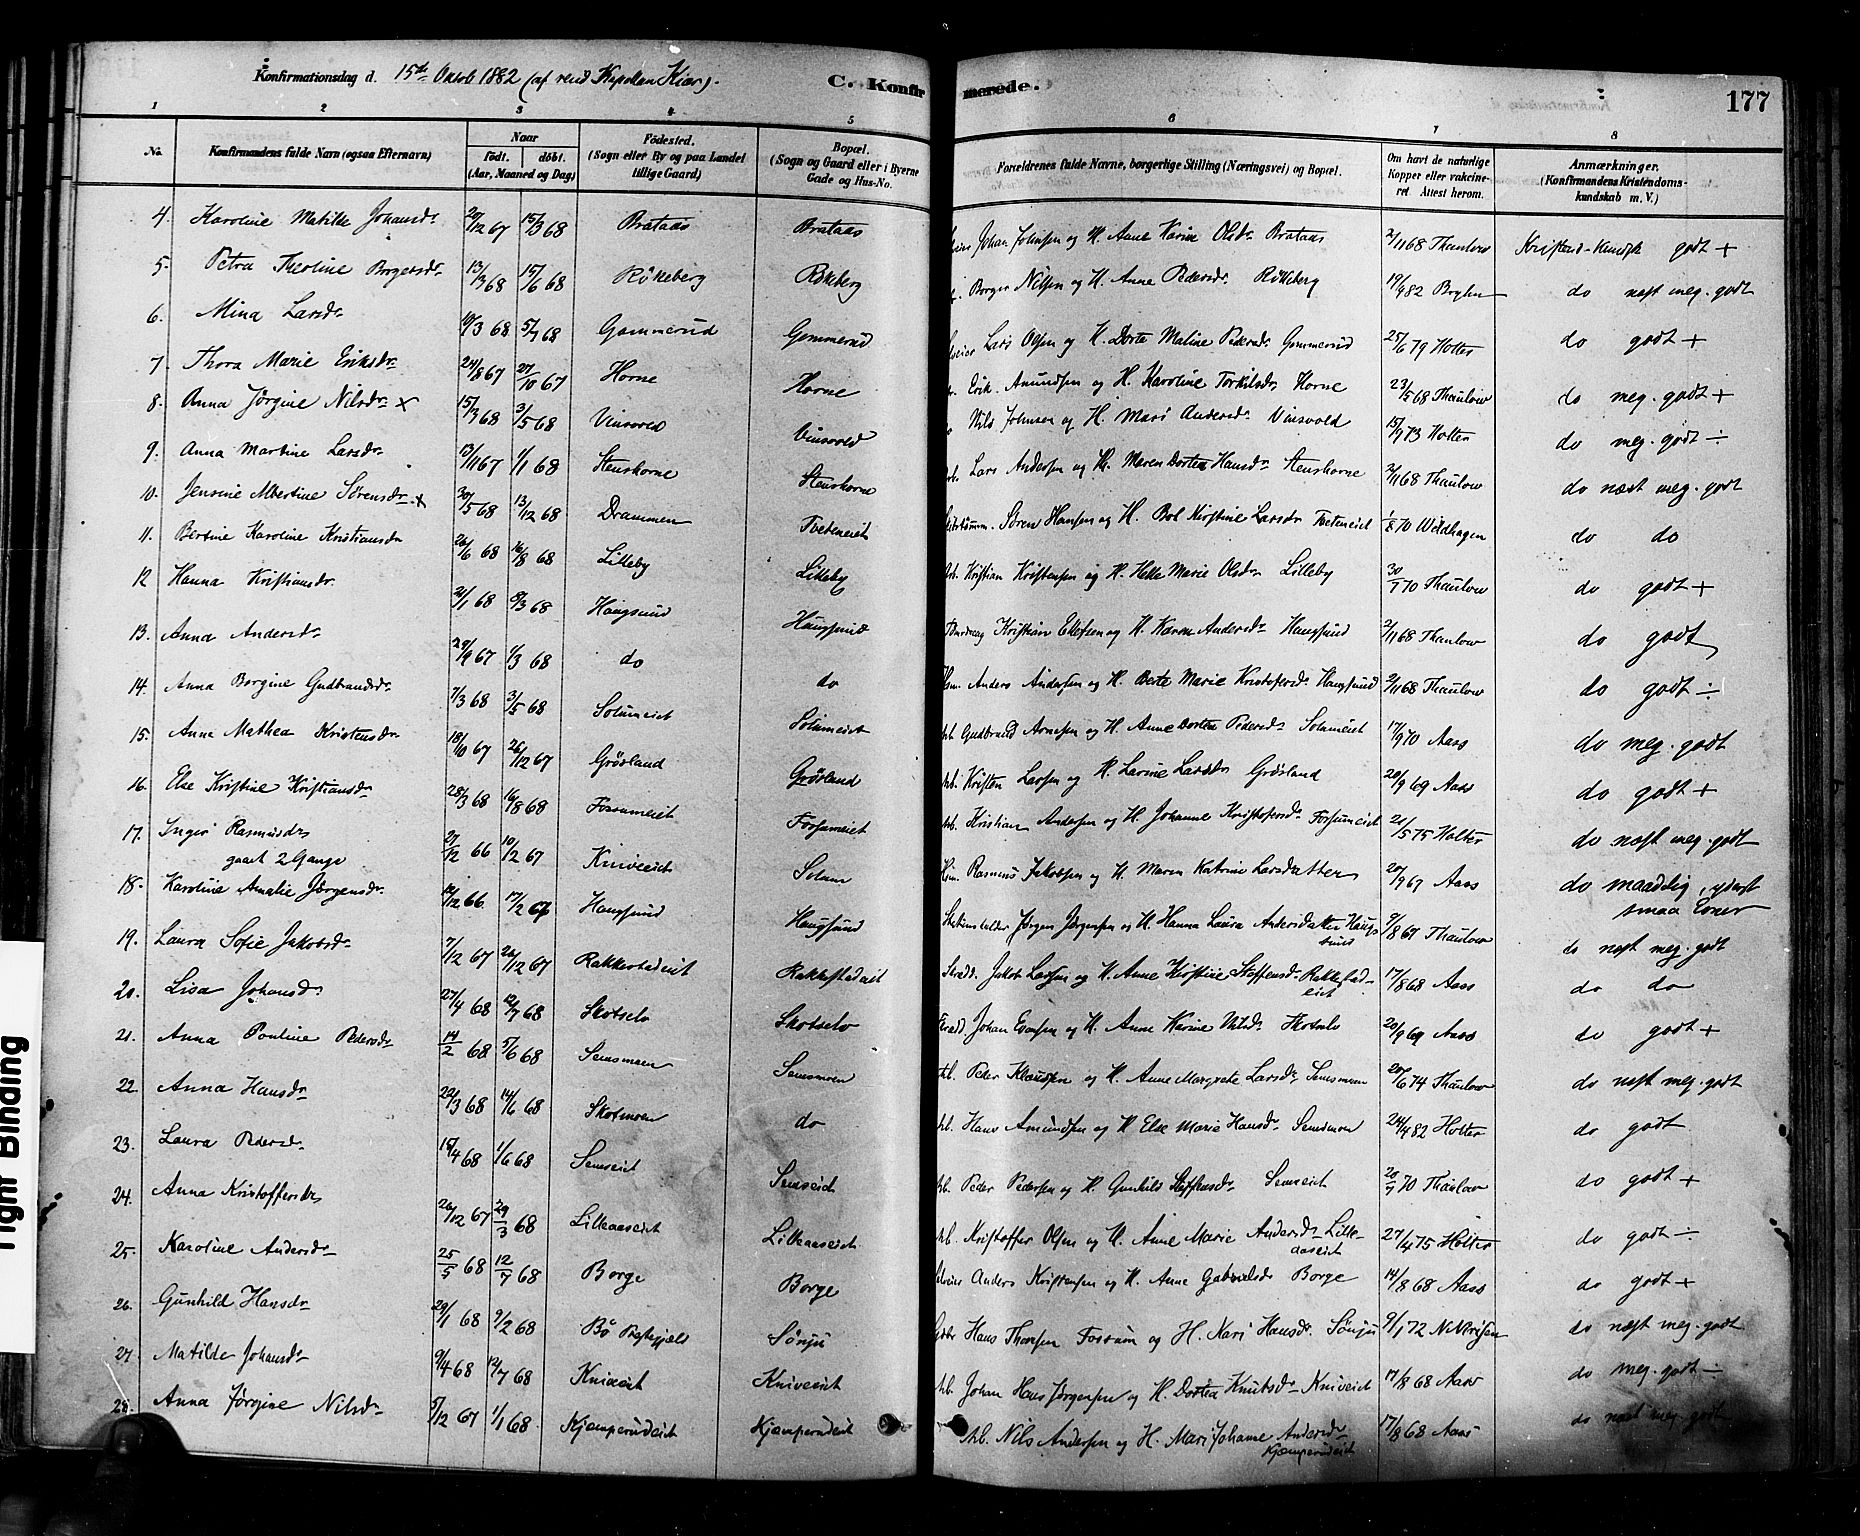 Konfirmationsdag d. 15de Oktob 1882 (af resd Kapellan Kiær). C. Konfirmerede. 177
1 2 3 4 5 6 7 8
No. Konfirmandens fulde Navn (ogsaa Efternavn) Naar født. døbt. (Aar, Maaned og Dag) Fødested. (Sogn eller By og paa Landet tillige Gaard) Bopæl. (Sogn og Gaard eller i Byerne Gade og Hus-No. Forældrenes fulde Navne, borgerlige Stilling (Næringsvei) og Bopæl. Om havt de naturlige Kopper eller vakcineret. Attest herom. Anmærkninger. (Konfirmandens Kristendomskundskab m. V.)
4. Karoline Matilde Johansdr 27/12 67 15/3 68 Brataas Brataas Johan Johnsen og H. Anne Karine Olsdr Brataas 2/11 68 Thaulow Kristend-Kundsk godt +
5. Petra Theoline Borgersdr 13/3 68 15/6 68 Rökeberg Rökeberg Borger Nilsen og H. Anne Pedersdr Rökeberg 19/9 82 do næst meg. godt
6. Mina Larsdr 10/3 68 5/7 68 Gommerud Gommerud Lars Olsen og H. Dorte Maline Pedersdr Gommerud 25/6 79 Holter do godt +
7. Thora Marie Eriksdr 24/8 67 27/10 67 Horne Horne Erik Amundsen og H. Karoline Torkilsdr Horne 23/5 68 Thaulow do meg. godt +
8. Anna Jørgine Nilsdr x 15/3 68 3/5 68 Vinsvold Vinsvold Nils Johnsen og H. Mari Andersdr Vinsvold 15/9 73 Holter do meg. godt ÷
9. Anna Martine Larsdr 13/11 67 1/1 68 Stenshorne Stenshorne Lars Andersen og H. Maren Dortea Hansdr Stenshorne 2/11 68 Thaulow do næst meg. godt
10. Jensine Albertine Sörensdr x 30/5 68 13/12 68 Drammen Tveteneiet Sören Hansen og H. Bol Kirstine Larsdr Tveteneiet 1/8 70 Wildhagen do do
11. Bertine Karoline Kristiansdr 26/6 68 16/8 68 Lilleby Lilleby Kristian Kristensen og H. Helle Marie Olsdr Lilleby 30/7 70 Thaulow do godt +
12 Hanna Kristiansdr 21/1 68 8/3 68 Haugsund Haugsund Kristian Ellefsen og H. Karen Andersdr Haugsund 2/11 68 Thaulow do godt
13. Anna Andersdr 29/9 67 1/3 68 do do Anders Andersen og H. Berte Marie Kristofersdr Haugsund 2/11 68 Thaulow do godt ÷
14. Anna Borgine Gudbrandsdr 7/3 68 3/5 68 Solumeiet Solumeiet Arb. Gudbrand Arnesen og H. Anne Dortea Pedersdr Solumeiet 17/9 70 Aass do meg. godt
15. Anne Mathea Kristensdr 18/10 67 26/12 67 Grösland Grösland Arb. Kristen Larsen og H. Lavine Larsdr Grösland 20/9 69 Aass do godt +
16. Else Kristine Kristiansdr 28/3 68 16/8 68 Fossumeiet Fossumeiet Arb. Kristian Andersen og H. Johanne Kristofersdr Fossumeiet 21/5 75 Holter do næst meg. godt
17. Inger Rasmusdr 27/12 66 10/2 67 Kniveeiet Solum Rasmus Jakobsen og H. Maren Katrine Larsdatter 20/9 67 Aass do maadelig, yderst
gaaet 2 Gange smaa Evner
18. Karoline Amalie Jørgensdr 12/12 66 17/2 67 Haugsund Haugsund Jørgen Jørgensen og H. Hanna Laura Andersdatter Haugsund 9/8 67 Thaulow do næst meg. godt
19. Laura Sofie Jakobsdr 7/12 67 26/12 67 Rakkestadeiet Rakkestadeiet Jakob Larsen og H. Anne Kristine Steffensdr Rakkestadeiet 17/8 68 Aass do do
20. Lisa Johansdr 27/4 68 12/7 68 Skotselv Skotselv Johan Esensen og H. Anne Karine Nilsdr Skotselv 20/9 69 Aass do godt +
21. Anna Pouline Pedersdr 14/2 68 5/6 68 Semsmoen Semsmoen Peder Klausen og H. Anne Margrete Larsdr Semsmoen 20/6 74 Thaulow do næst meg. godt
22. Anna Hansdr 22/3 68 14/6 68 Skotmoen do Arb. Hans Amundsen og H Else Marie Hansdr Semsmoen 24/9 82 Holter do godt
23. Laura Pedersdr 18/4 68 1/6 68 Semseiet Semseiet Arb. Peder Pedersen og H. Gunhild Steffensdr Semseiet 20/9 70 Thaulow do godt +
24. Anna Kristoffersdr 26/12 67 29/3 68 Lilleaaseiet Lilleaaseiet Arb. Kristoffer Olsen og H. Anne Marie Andersdr Lilleaaseiet 27/4 75 Holter do godt ÷
25. Karoline Andersdr 25/5 68 12/7 68 Borge Borge Anders Kristensen og H. Anne Gabrielsdr Borge 14/8 68 Aass do godt +
26. Gunhild Hansdr 29/1 68 9/2 68 Bö Prestegjeld Sönju Hans Thorsen Fossum og H. Kari Hansdr Sönju 9/1 72 do næst meg. godt
27. Matilde Johansdr 9/4 68 12/7 68 Kniveeiet Kniveeiet Arb. Johan Hans Jørgensen og H. Dortea Knutsdr Kniveeiet 17/8 68 Aass do meg. godt ÷
28. Anna Jörgine Nilsdr 5/12 67 1/1 68 Kjemperudeiet Kjemperudeiet Arb. Nils Andersen og H. Mari Johanne Andersdr Kjemperudeiet 17/8 68 Aass do næst meg. godt
Tight Binding